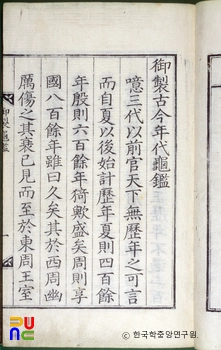 御製古今年代龜鑑
噫三代以前官天下無歷年之可言
而自夏以後始計歷年夏則四百餘
年殷則六百餘年猗歟盛矣周則享
國八百餘年雖曰久矣其於西周幽
厲傷之其衰已見而至於東周王室
御製龜鑑
一
PUNC
(c) 한국학중앙연구원